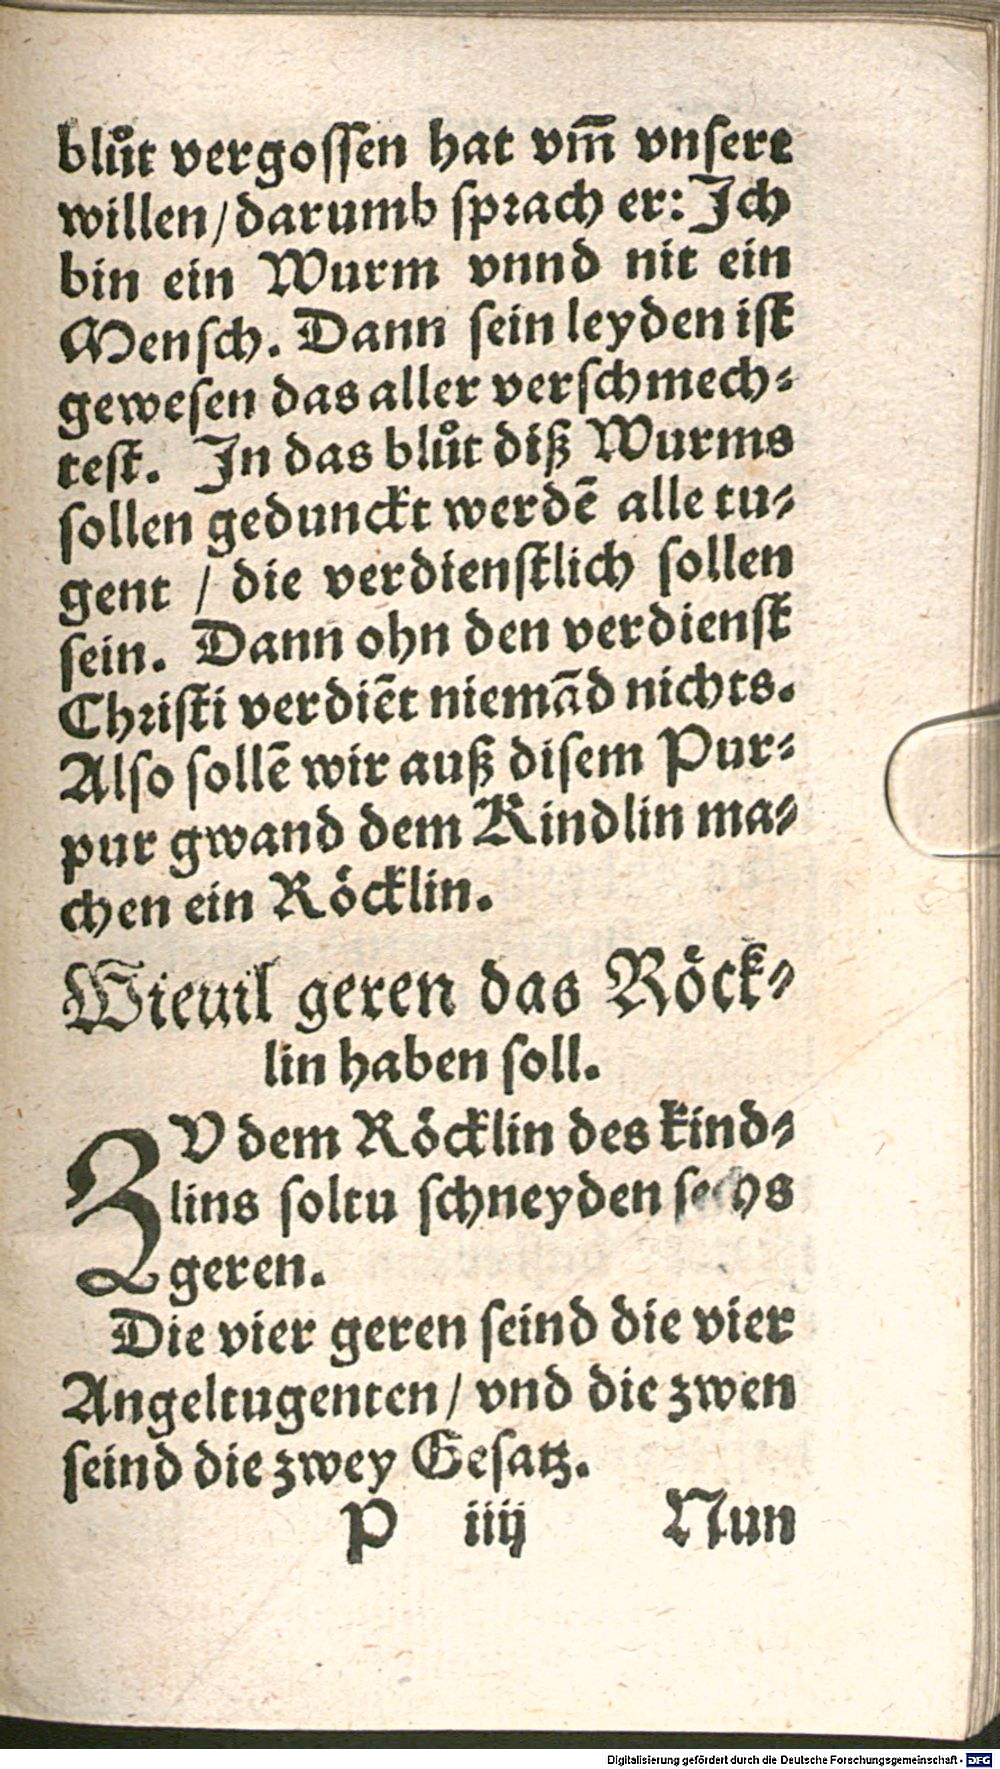 blůt vergossen hat vm̄ vnsere
willen/darumb sprach er: Ich
bin ein Wurm vnnd nit ein
Mensch. Dann sein leyden ist
gewesen das aller verschmech⸗
test. In das blůt diß Wurms
sollen gedunckt werdē alle tu⸗
gent / die verdienstlich sollen
sein. Dann ohn den verdienst
Christi verdiēt niemād nichts.
Also sollē wir auß disem Pur⸗
pur gwand dem Kindlin ma⸗
chen ein Röcklin.
Wieuil geren das Röck⸗
lin haben soll.
ZV dem Röcklin des kind⸗
lins soltu schneyden sechs
geren.
Die vier geren seind die vier
Angeltugenten/ vnd die zwen
seind die zwey Gesatz.
P iiij Nun
Digitalisierung gefördert durch die Deutsche Forschungsgemeinschaft - DFG